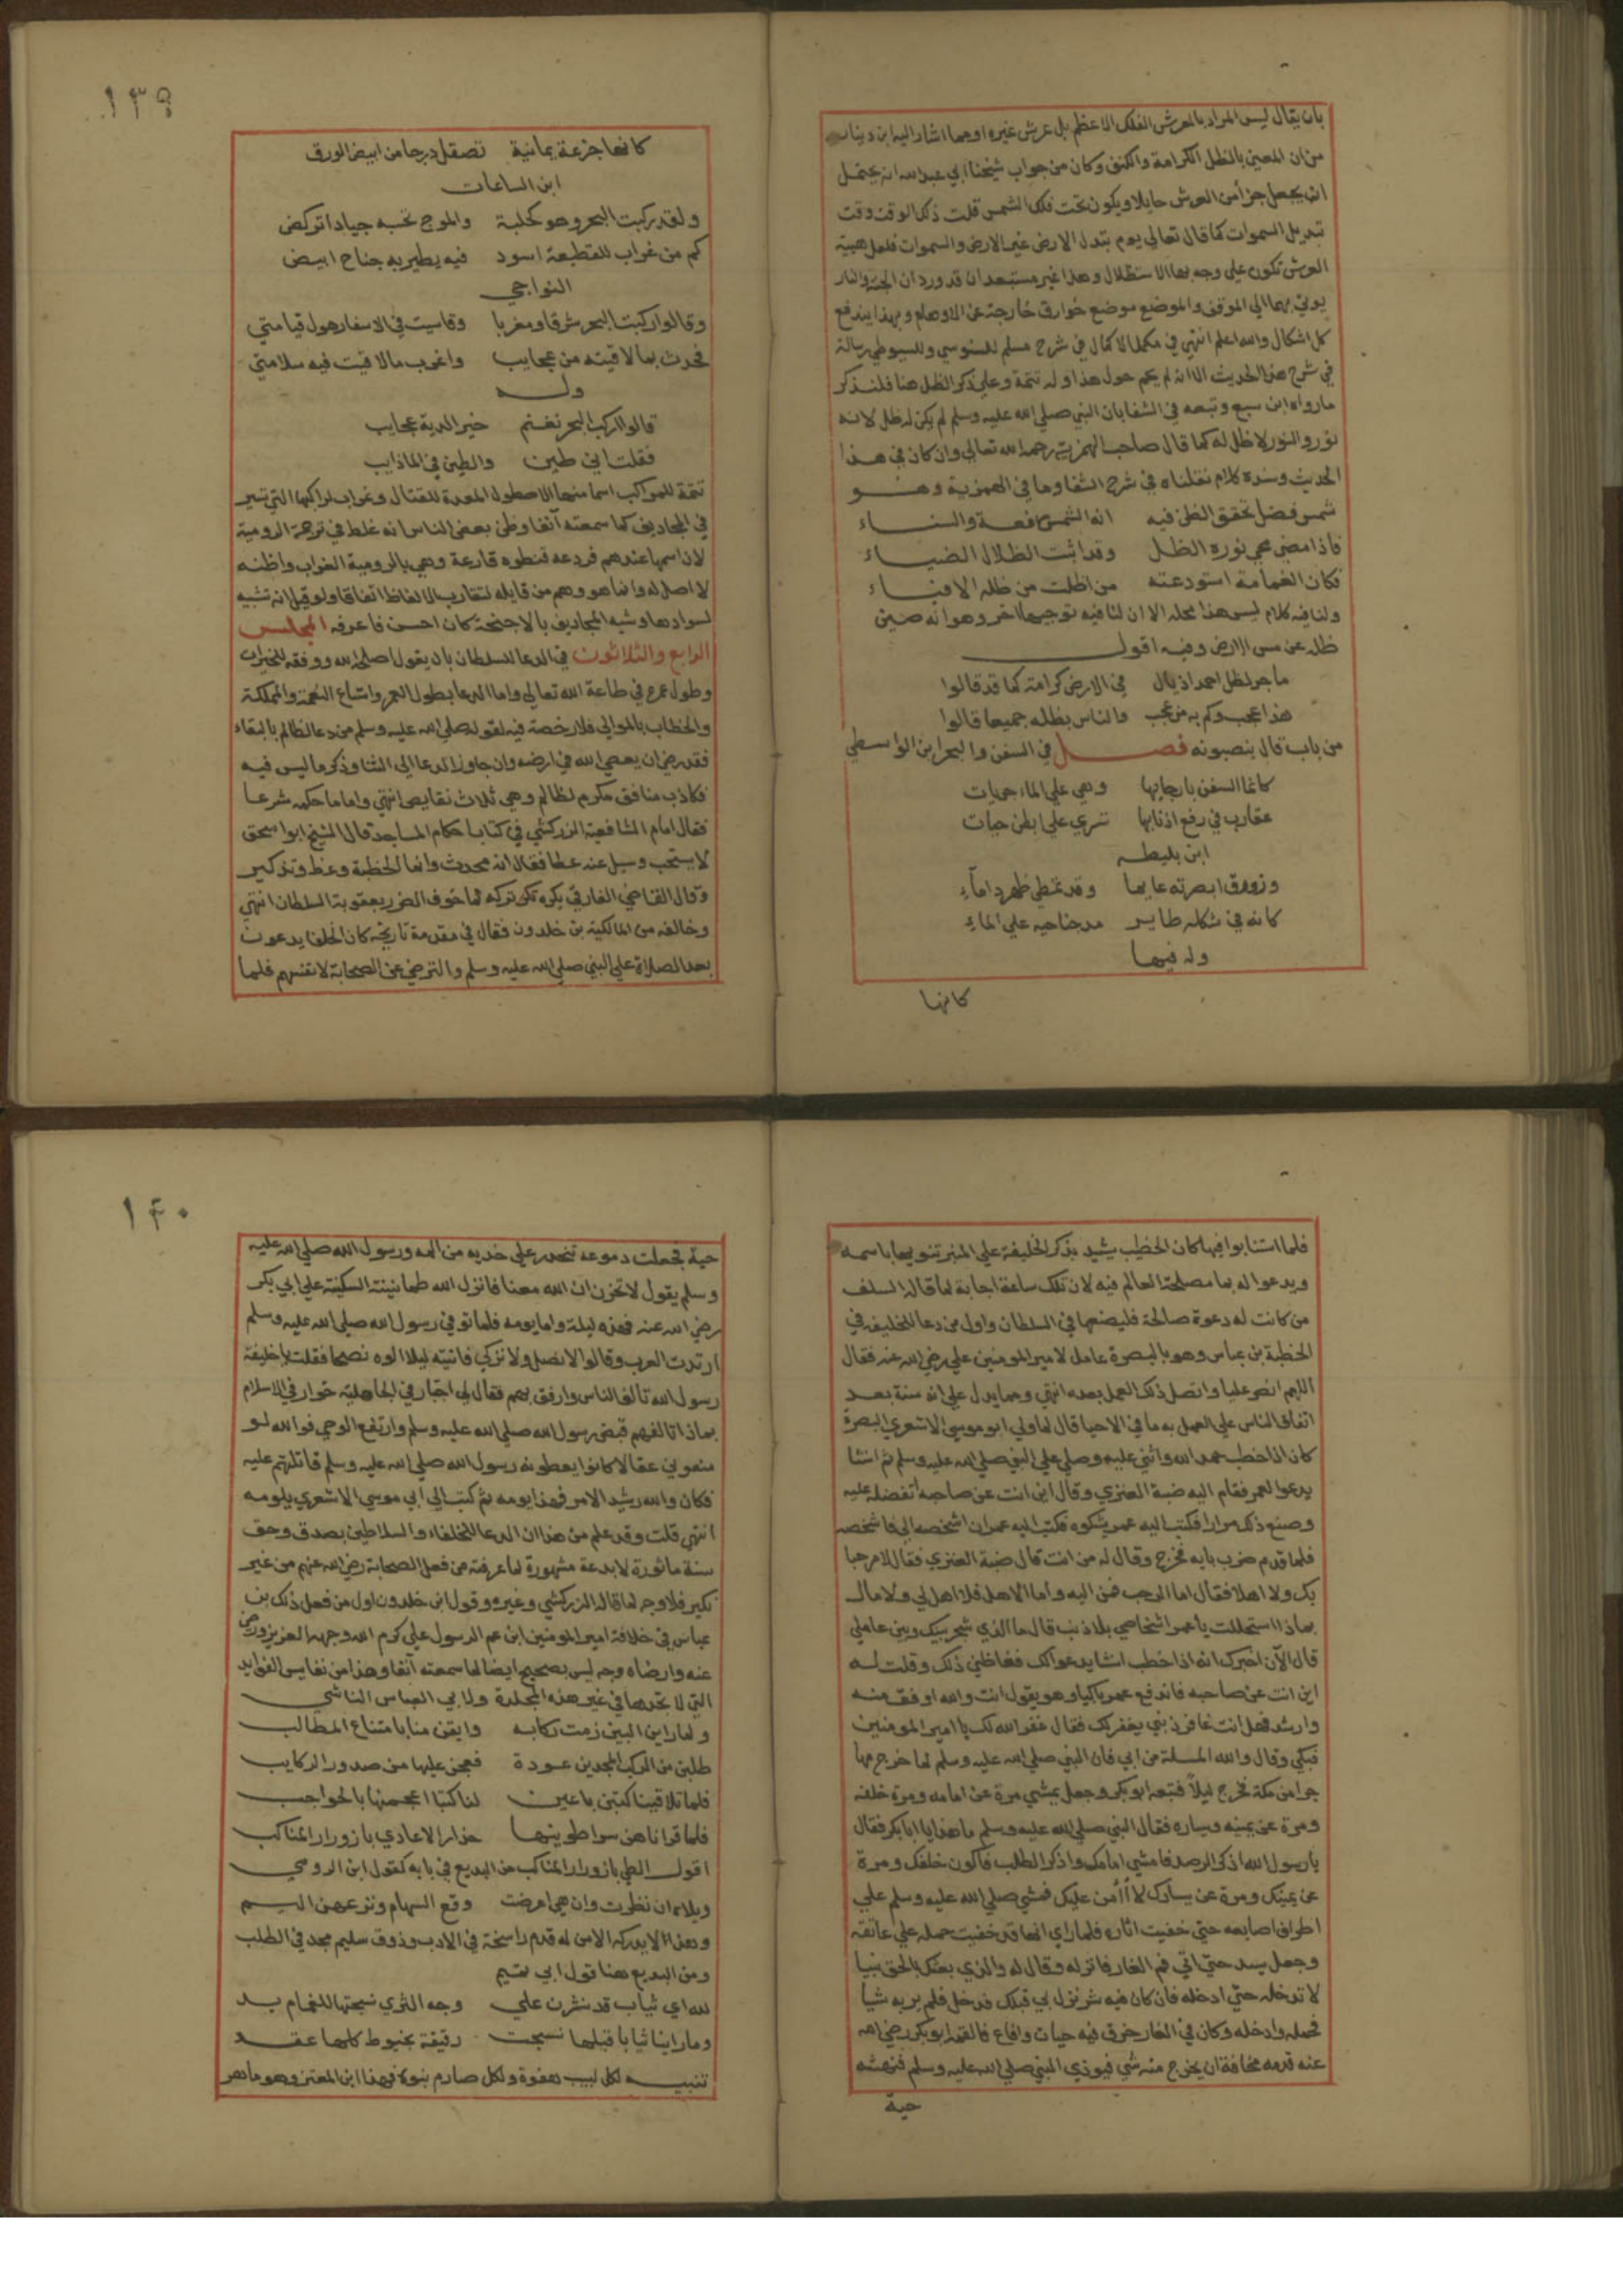 بان يقال ليس المراد بالعرش الفلك الاعظم بل عرش غيره او مما اشار اليه ابن دينار
من ان المعين بالظل الكرامة والكنف وكان من جواب شيخنا ابي عبد الله انه يحتمل
ان يجعل جزأ من العرش حايلا ويكون تحت فلك الشمس قلت ذلك الوقت وقت
تبديل السموات كما قال تعالي يوم تبدل الارض غير الارض والسموات فلعل هيبة
العرش تكون علي وجه بها الاستظلال وهذا غير مستبعد ان قد ورد ان الجنة والنار
يوتي بهما الي الموقف والموضع موضع خوارق خارجة عن الاوهام وبهذا يندفع
كل اشكال والله اعلم انتهي في مكمل الاكمال في شرح مسلم للسنوسي وللسيوطي رسالة
في شرح هذا الحديث الا انه لم يحم حول هذا وله تتمة وعلي ذكر الظل هنا فلنذكر
مارواه ابن سبع وتبعه في الشفا بان النبي صلي الله عليه وسلم لم يكن له ظل لانه
نور والنور لا ظل له كما قال صاحب الهمزية رحمه الله تعالي وان كان في هذا
الحديث وسنده كلام نقلناه في شرح الشفا وما في الهمزية وهو
شمس فضل تحقق الظن فيه انه الشمس رفعة والسناء
فاذا مضي محي نوره الظل وقد اثبت الظلال الضياء
فكان الغمامة استودعته من اظلت من ظله الافياء
ولنا فيه كلام ليس هذا محله الا ان لنا فيه توجيها اخر وهو انه صين
ظله عن مس الارض وفيه اقول
ما جر لظل احمد اذيال في الارض كرامة كما قد قالوا
هذا عجب وكم به من عجب والناس بظله جميعا قالوا
من باب قال ينصبونه فصل في السفن والبحر ابن الواسطي
كانما السفن بارجايها وهي علي الماء جريات
عقارب في رفع اذنابها تسري علي ابطن حيات
ابن بليطه
وزورق ابصرته عايما وقد تمطي ظهر دامآء
كانه في شكله طاير مد جناحيه علي الماء
وله فيها
كانها
١٣٩
كانها جزعة يمانية تصقل درجا من ابيض الورق
ابن الساعات
ولقد ركبت البحر وهو كحلبة والموج تحسبه جيادا تركض
كم من غراب للقطيعة اسود فيه يطير به جناح ابيض
النواجي
وقالوا ركبت البحر شرقا ومغربا وقاسيت في الاسفار هول قيامتي
فحدث بما لاقيته من عجايب واغرب ما لاقيت فيه سلامتي
وله
قالوا اركب البحر تغنم خير الديه عجايب
فقلت اني طين والطين في الما ذايب
تتمة للمراكب اسما منها الاصطول المعدة للقتال وغراب لمراكبها التي تسير
في المجاديف كما سمعته آنفا وظن بعض الناس انه غلط في ترجمة الرومية
لان اسمها عندهم قردعه قنطوره قارعة وهي بالرومية الغراب واظنه
لا اصل له وانما هو وهم من قايله لتقارب الالفاظ اتفاقا ولو قيل انه تشبيه
لسوادها وشبه المجاديف بالاجنحة كان احسن فاعرفه المجلس
الرابع والثلاثون في الدعا للسلطان بان يقول اصلح الله ووفقه للخيرات
وطول عمره في طاعة الله تعالي واما الدعا بطول العمر واتساع النعمة والمملكة
والخطاب بالموالي فلا رخصة فيه لقوله صلي الله عليه وسلم من دعا لظالم بالبقاء
فقد رضي ان يعصي الله في ارضه وان جاوز الدعا الي الثنا وذكر ما ليس فيه
فكاذب منافق مكرم لظالم وهي ثلاث نقايص انتهي واما ما حكمه شرعا
فقال امام الشافعية الزركشي في كتاب احكام المساجد قال الشيخ ابو اسحق
لا يستحب وسيل عنه عطا فقال انه محدث وانما الخطبة وعظ وتذكير
وقال القاضي الفارقي يكره تركه لما خوف الضرر بعقوبة السلطان انتهي
وخالفه من المالكية بن خلدون فقال في مقدمة تاريخه كان الخلفا يدعون
بعد الصلاة علي النبي صلي الله عليه وسلم والترضي عن الصحابة لانفسهم فلما
فلما استنابوا فيها كان الخطيب يشيد بذكر الخليفة علي المنبر تنويها باسمه
ويدعوا له بما مصلحة العالم فيه لان تلك ساعة اجابة لما قاله السلف
من كانت له دعوة صالحة فليضعها في السلطان واول من دعا للخليفة في
الخطبة بن عباس وهو بالبصرة عامل لامير المومنين علي رضي الله عنه فقال
اللهم انصر عليا واتصل ذلك العمل بعده انتهي ومما يدل علي انه سنة بعد
اتفاق الناس علي العمل به ما في الاحيا قال لما ولي ابو موسي الاشعري البصرة
كان اذا خطب حمد الله وأثني عليه وصلي علي النبي صلي الله عليه وسلم ثم انشا
يدعوا لعمر فقام اليه ضبة العنزي وقال اين انت عن صاحبه أتفضله عليه
وصنع ذلك مرارا فكتب اليه عمر يشكوه فكتب اليه عمر ان اشخصه الي فاشخصه
فلما قدم ضرب بابه فخرج وقال له من انت قال ضبة العنزي فقال لا مرحبا
بك ولا اهلا فقال اما الرحب فمن الله واما الاهل فلا اهل لي ولا مال
بماذا استحللت يا عمر اشخاصي بلا ذنب قال ما الذي شجر بينك وبين عاملي
قال الآن اخبرك انه اذا خطب انشا يدعوا لك فغاظني ذلك وقلت له
اين انت عن صاحبه فاندفع عمر باكيا وهو يقول انت والله اوفق منه
وارشد فهل انت غافر ذنبي يغفر لك فقال غفر الله لك يا امير المومنين
فبكي وقال والله لليلة من ابي فان النبي صلي الله عليه وسلم لما خرج مهاجرا
من مكة خرج ليلاً فتبعه ابو بكر وجعل يمشي مرة عن امامه ومرة خلفه
ومرة عن يمينه ويساره فقال النبي صلي الله عليه وسلم ما هذا يا ابا بكر فقال
يا رسول الله اذكر الرصد فامشي امامك واذكر الطلب فاكون خلفك ومرة
عن يمينك ومرة عن يسارك لا أأمن عليك فمشي صلي الله عليه وسلم علي
اطراف اصابعه حتي خفيت اثاره فلما راي انها قد خفيت حمله علي عاتقه
وجعل يسد حتي اتي فم الغار فانزله وقال له والذي بعثك بالحق نبيا
لا تدخله حتي ادخله فان كان فيه شر نزل بي قبلك فدخل فلم ير به شيا
فحمله وادخله وكان في الغار خرق فيه حيات وافاع فالقمه ابو بكر رضي الله
عنه قدمه مخافة ان يخرج منه شي فيوذي النبي صلي الله عليه وسلم فنهشته
حية
١٤٠
حية فجعلت دموعه تنحدر علي خديه من المه ورسول الله صلي الله عليه
وسلم يقول لا تحزن ان الله معنا فانزل الله طمانينته السكينة علي ابي بكر
رضي الله عنه فهذه ليلة واما يومه فلما توفي رسول الله صلي الله عليه وسلم
ارتدت العرب وقالوا لا نصلي ولا نزكي فاتيته ليلا الوه نصحا فقلت يا خليفة
رسول الله تالف الناس وارفق بهم فقال لي اجبار في الجاهلية خوار في الاسلام
بماذا اتالفهم قبض رسول الله صلي الله عليه وسلم وارتفع الوحي فوالله لو
منعوني عقالا كانوا يعطونه رسول الله صلي الله عليه وسلم قاتلتهم عليه
فكان والله رشيد الامر فهذا يومه ثم كتب الي ابي موسي الاشعري يلومه
انتهي قلت وقد علم من هذا ان الدعا للخلفاء والسلاطين بصدق وحق
سنة ماثورة لا بدعة مشهورة لما عرفته من فعل الصحابة رضي الله عنهم من غير
نكير فلا وجه لما قاله الزركشي وغيره وقول ابن خلدون اول من فعل ذلك بن
عباس في خلافة امير المومنين ابن عم الرسول علي كرم الله وجهه العزيز ورضي
عنه وارضاه وجه ليس بصحيح ايضا لما سمعته آنفا وهذا من نفايس الفوايد
التي لا تجدها في غير هذه المجلدة ولابي العباس الناشي
ولما راين البين زمت ركابه وايقن منا بامتناع المطالب
طلبن من الركب المجدين عودة فعجن علينا من صدور الركايب
فلما تلاقينا كتبن باعين لنا كتبا اعجمنها بالحواجب
فلما قراناهن سرا طوينها حذار الاعادي بازورار المناكب
اقول الطي بازورار المناكب من البديع في بابه كقول ابن الرومي
ويلاه ان نظرت وان هي اعرضت وقع السهام ونزعهن اليم
وهذا لا يدركه الا من له قدم راسخة في الادب وذوق سليم مجد في الطلب
ومن البديع هنا قول ابي تميم
لله اي ثياب قد نشرن علي وجه الثري نسجتها للغمام يد
وما راينا ثيابا قبلها نسجت رقيقة بخيوط كلها عقد
تنبيه لكل لبيب هفوة ولكل صارم نبوة فهذا ابن المعتز وهو ماهر